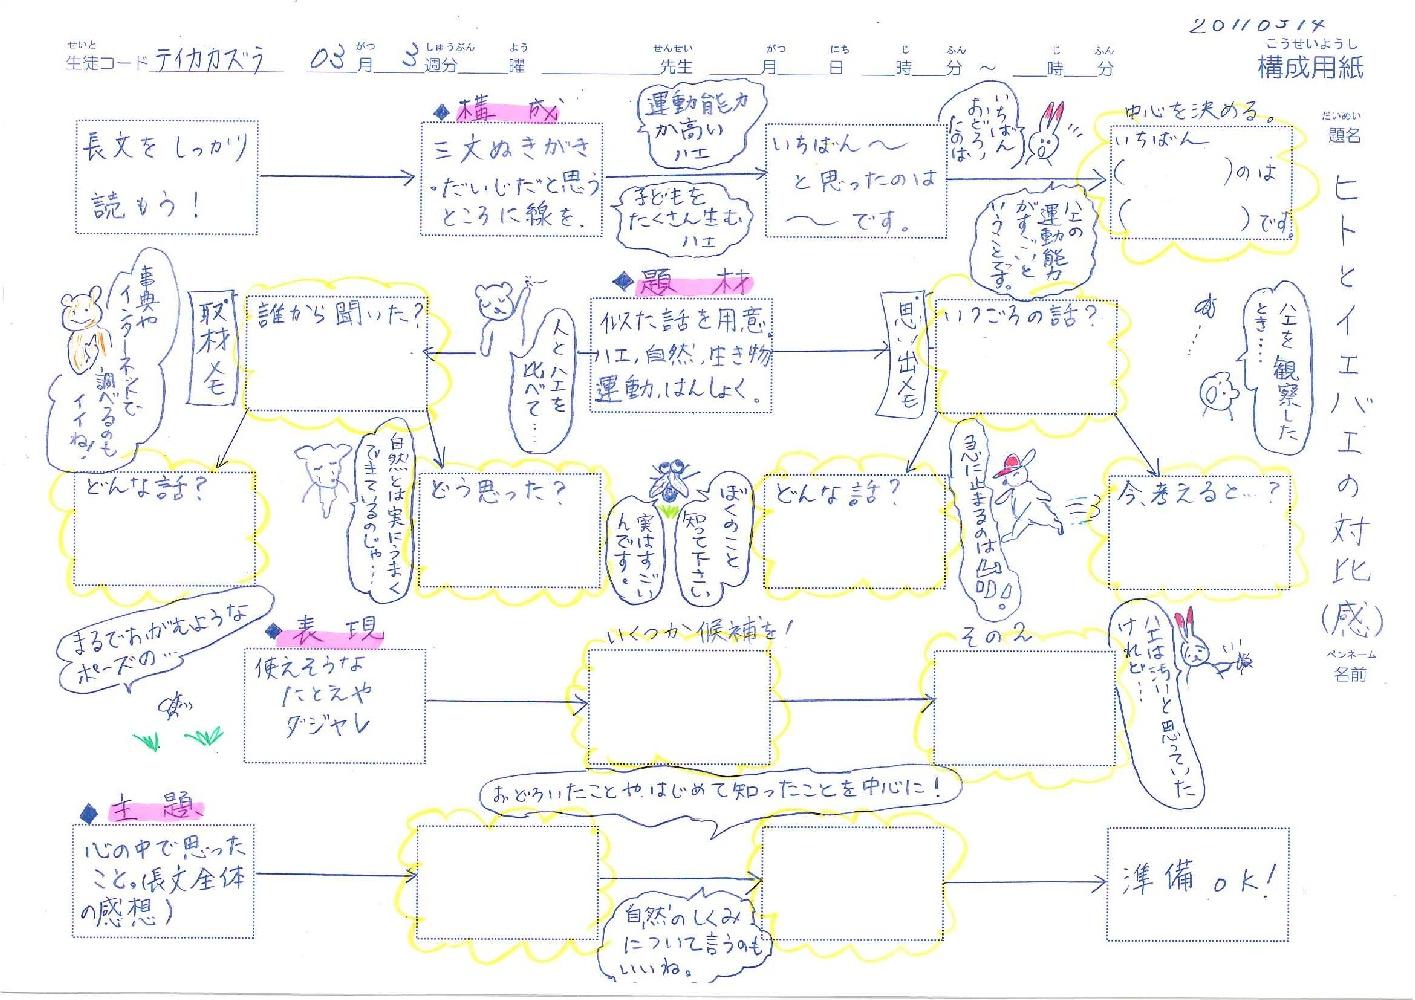 20110314
せいと
がつ
しゅうぶん
よう
せんせい
がつ
にち
じ
ふん
じ
ふん
こうせいようし
生徒コード テイカカズラ 03月 3週分 曜 先生 月 日 時 分 ～ 時 分
構成用紙
だいめい
題名
ヒトとイエバエの対比(感)
ペンネーム
名前
長文をしっかり
読もう!
◆構 成
三文ぬきがき
・だいじだと思う
ところに線を。
運動能力
が高い
ハエ
子どもを
たくさん生む
ハエ
いちばん～
と思ったのは
～です。
いちばん
おどろい
たのは、
中心を決める。
いちばん
( )のは
( )です。
ハエの
運動能力
がすごいと
いうことです。
◆題 材
似た話を用意。
ハエ、自然、生き物
運動、はんしょく。
思い出メモ
いつごろの話?
ハエを観察した
とき……
どんな話?
急に止まるのは
今、考えると…?
人とハエを
比べて…
取材メモ
誰から聞いた?
事典や
インターネットで
調べるのも
イイね!
どんな話?
自然とは実にうまく
できているのじゃ…
どう思った?
ぼくのこと
知って下さい
実はすごい
んです。
まるでおがむような
ポーズの…
◆表 現
使えそうな
たとえや
ダジャレ
いくつか候補を!
その2
ハエは汚いと思っていた
けれど…
おどろいたことや、はじめて知ったことを中心に!
◆主 題
心の中で思った
こと。(長文全体
の感想)
自然のしくみ
について言うのも
いいね。
準備OK!